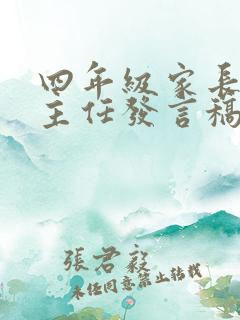 四年級家長
主任發言稿
張君毅
未任同意禁止转载